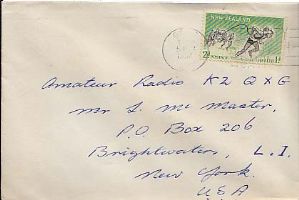 NEW ZEALAND
2d
1d
Amateur Radio K2 QXG
Mr L. Mc Master,
P.O. Box 206
Brightwaters, L.I.
New York.
USA